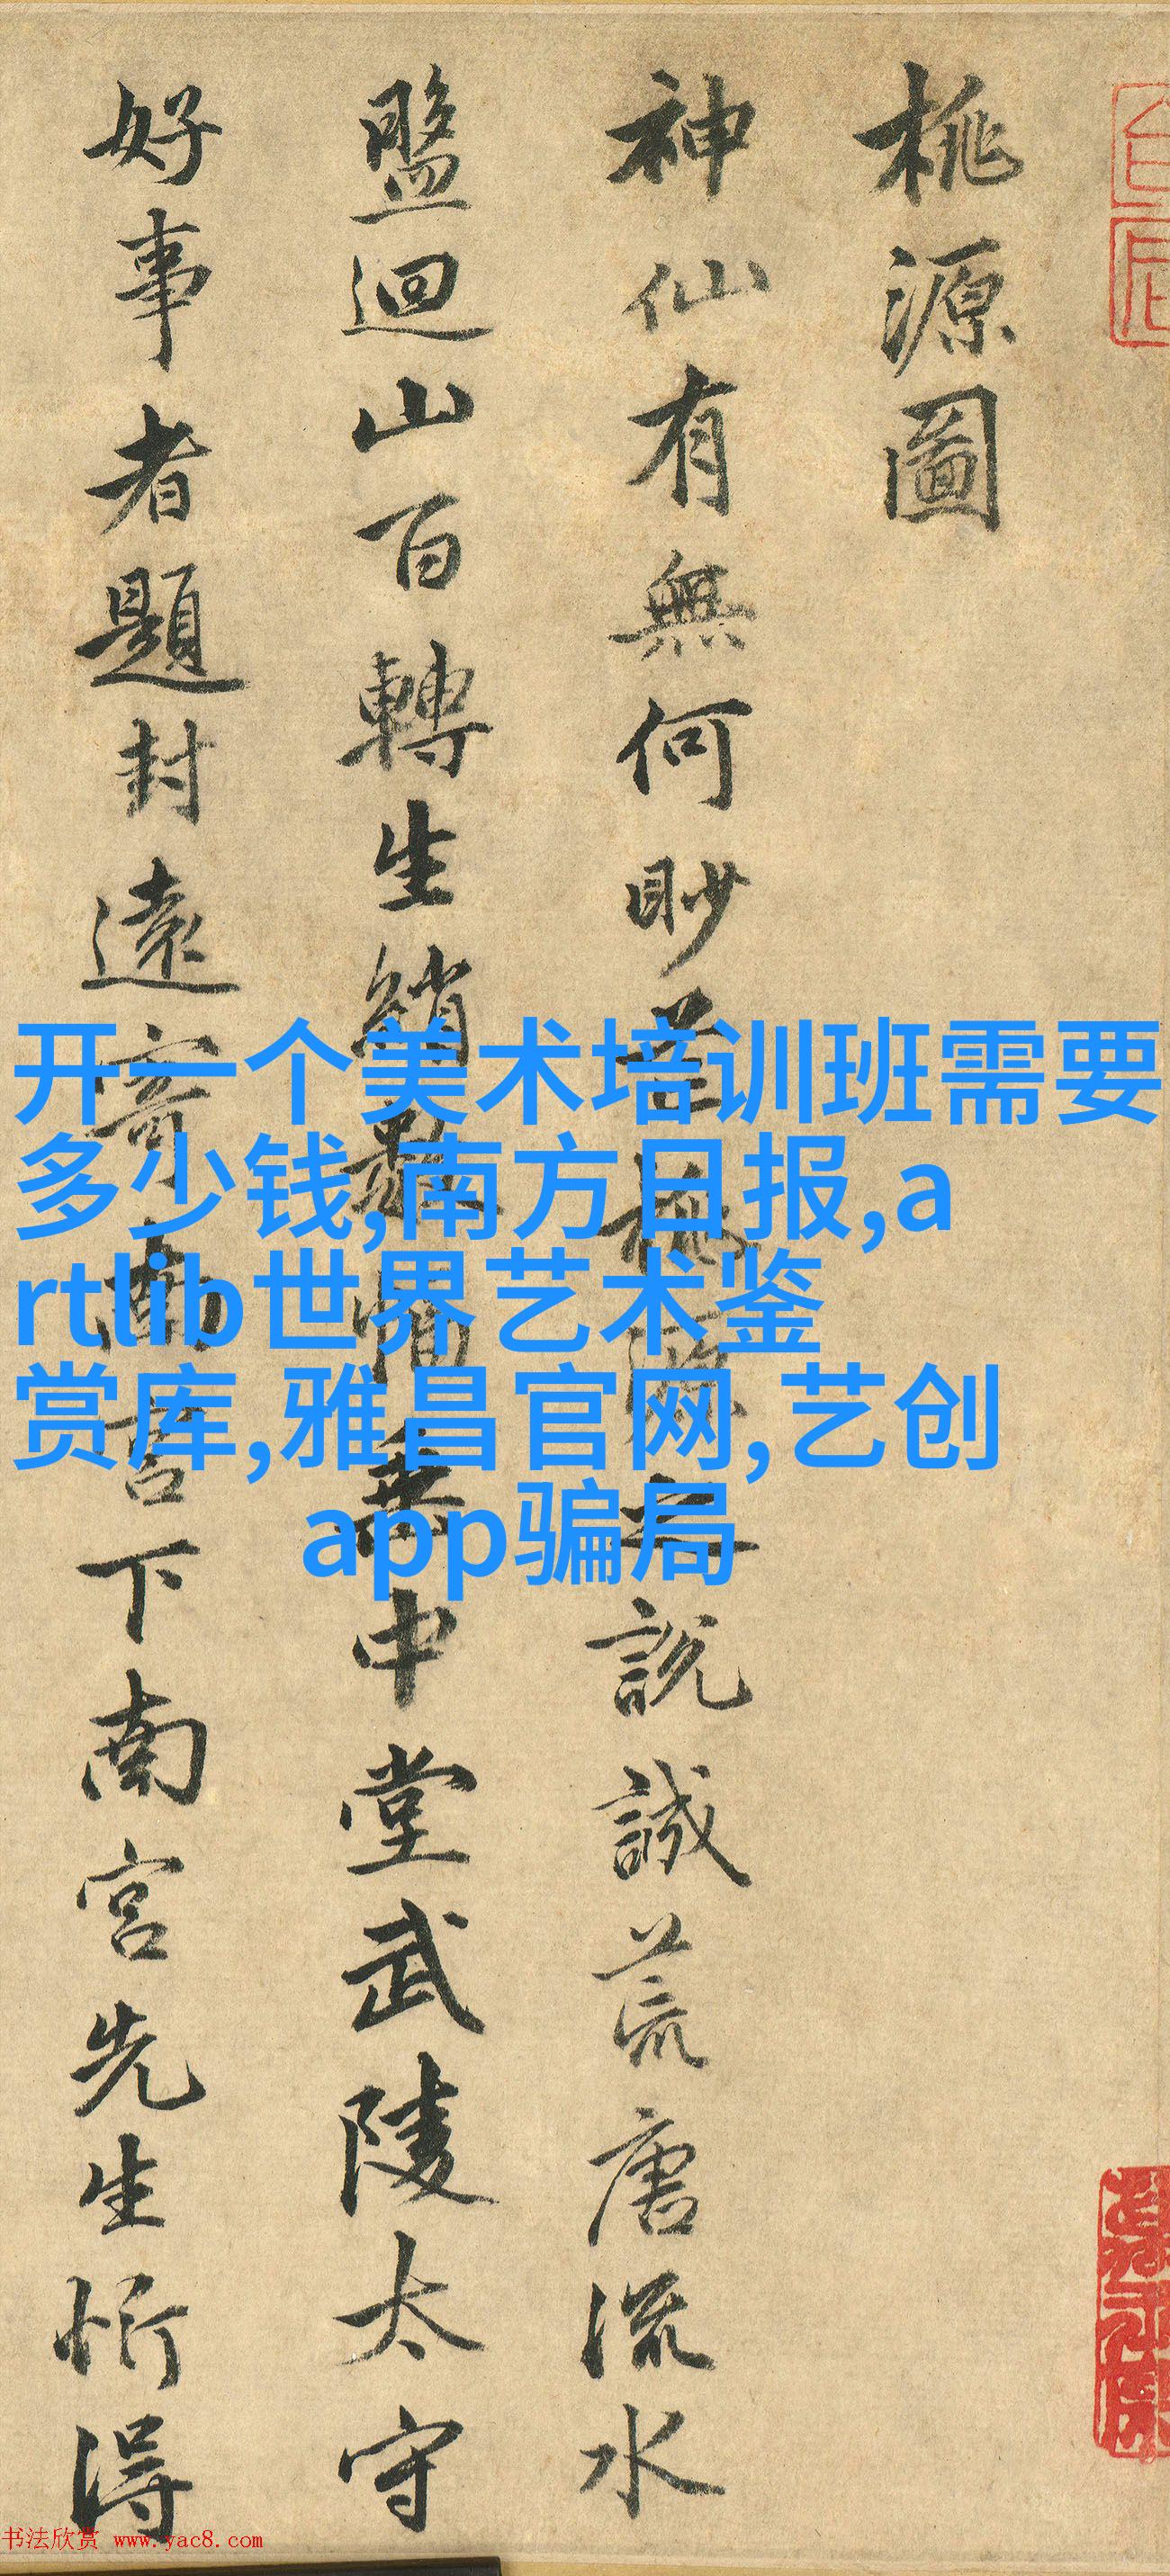 桃源圖
神仙有無何眇芒桃源之說誠荒唐流水
盤迴山百轉生綃數幅垂中堂武陵太守
好事者題封遠寄南宮下南宮先生忻得
开一个美术培训班需要
多少钱,南方日报,a
rtlib世界艺术鉴
赏库,雅昌官网,艺创
app骗局
书法欣赏 www.yac8.com